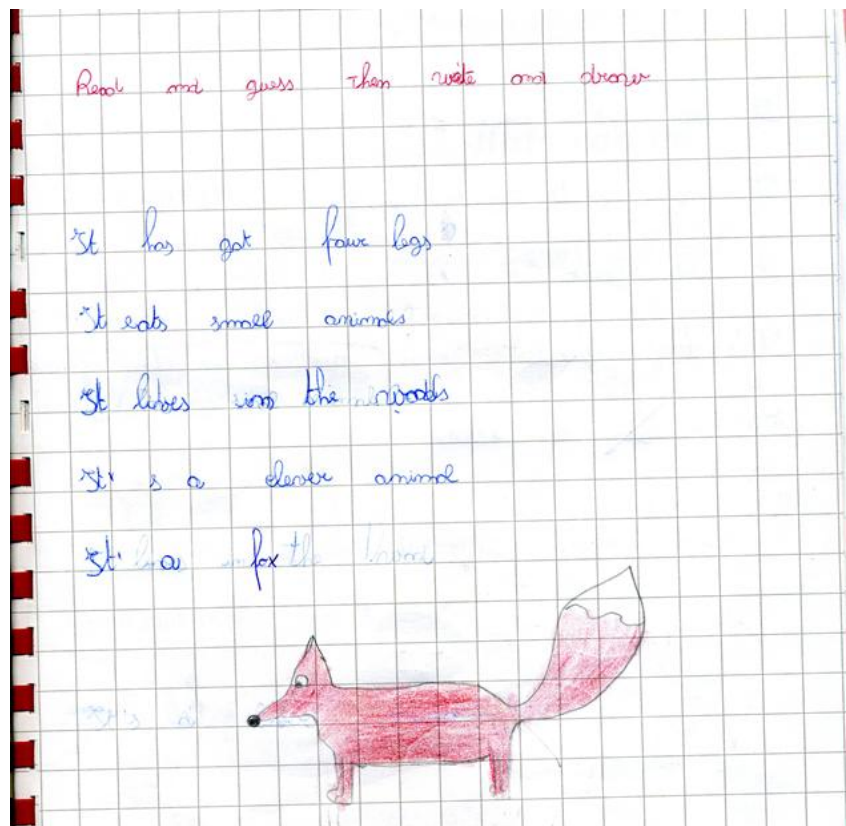 Read and guess Then write and draw
It has got four legs
It eats small animals
It lives in the woods
It's a clever animal
It' a fox